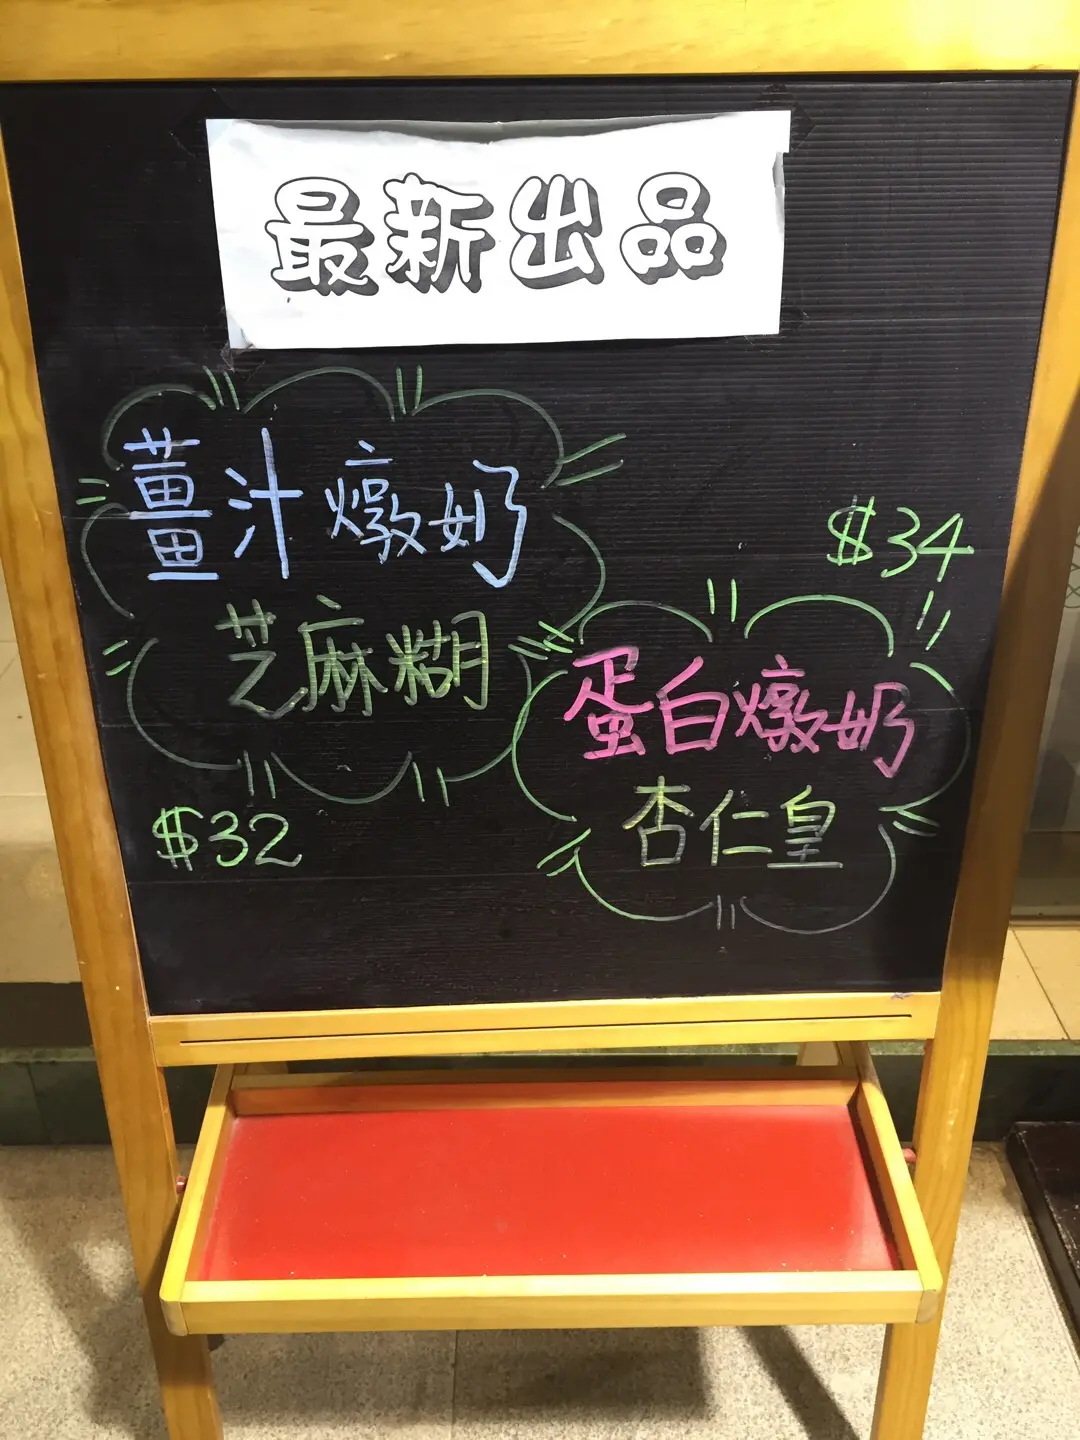 最新出品
薑汁燉奶
芝麻糊
$32
$34
蛋白燉奶
杏仁皇